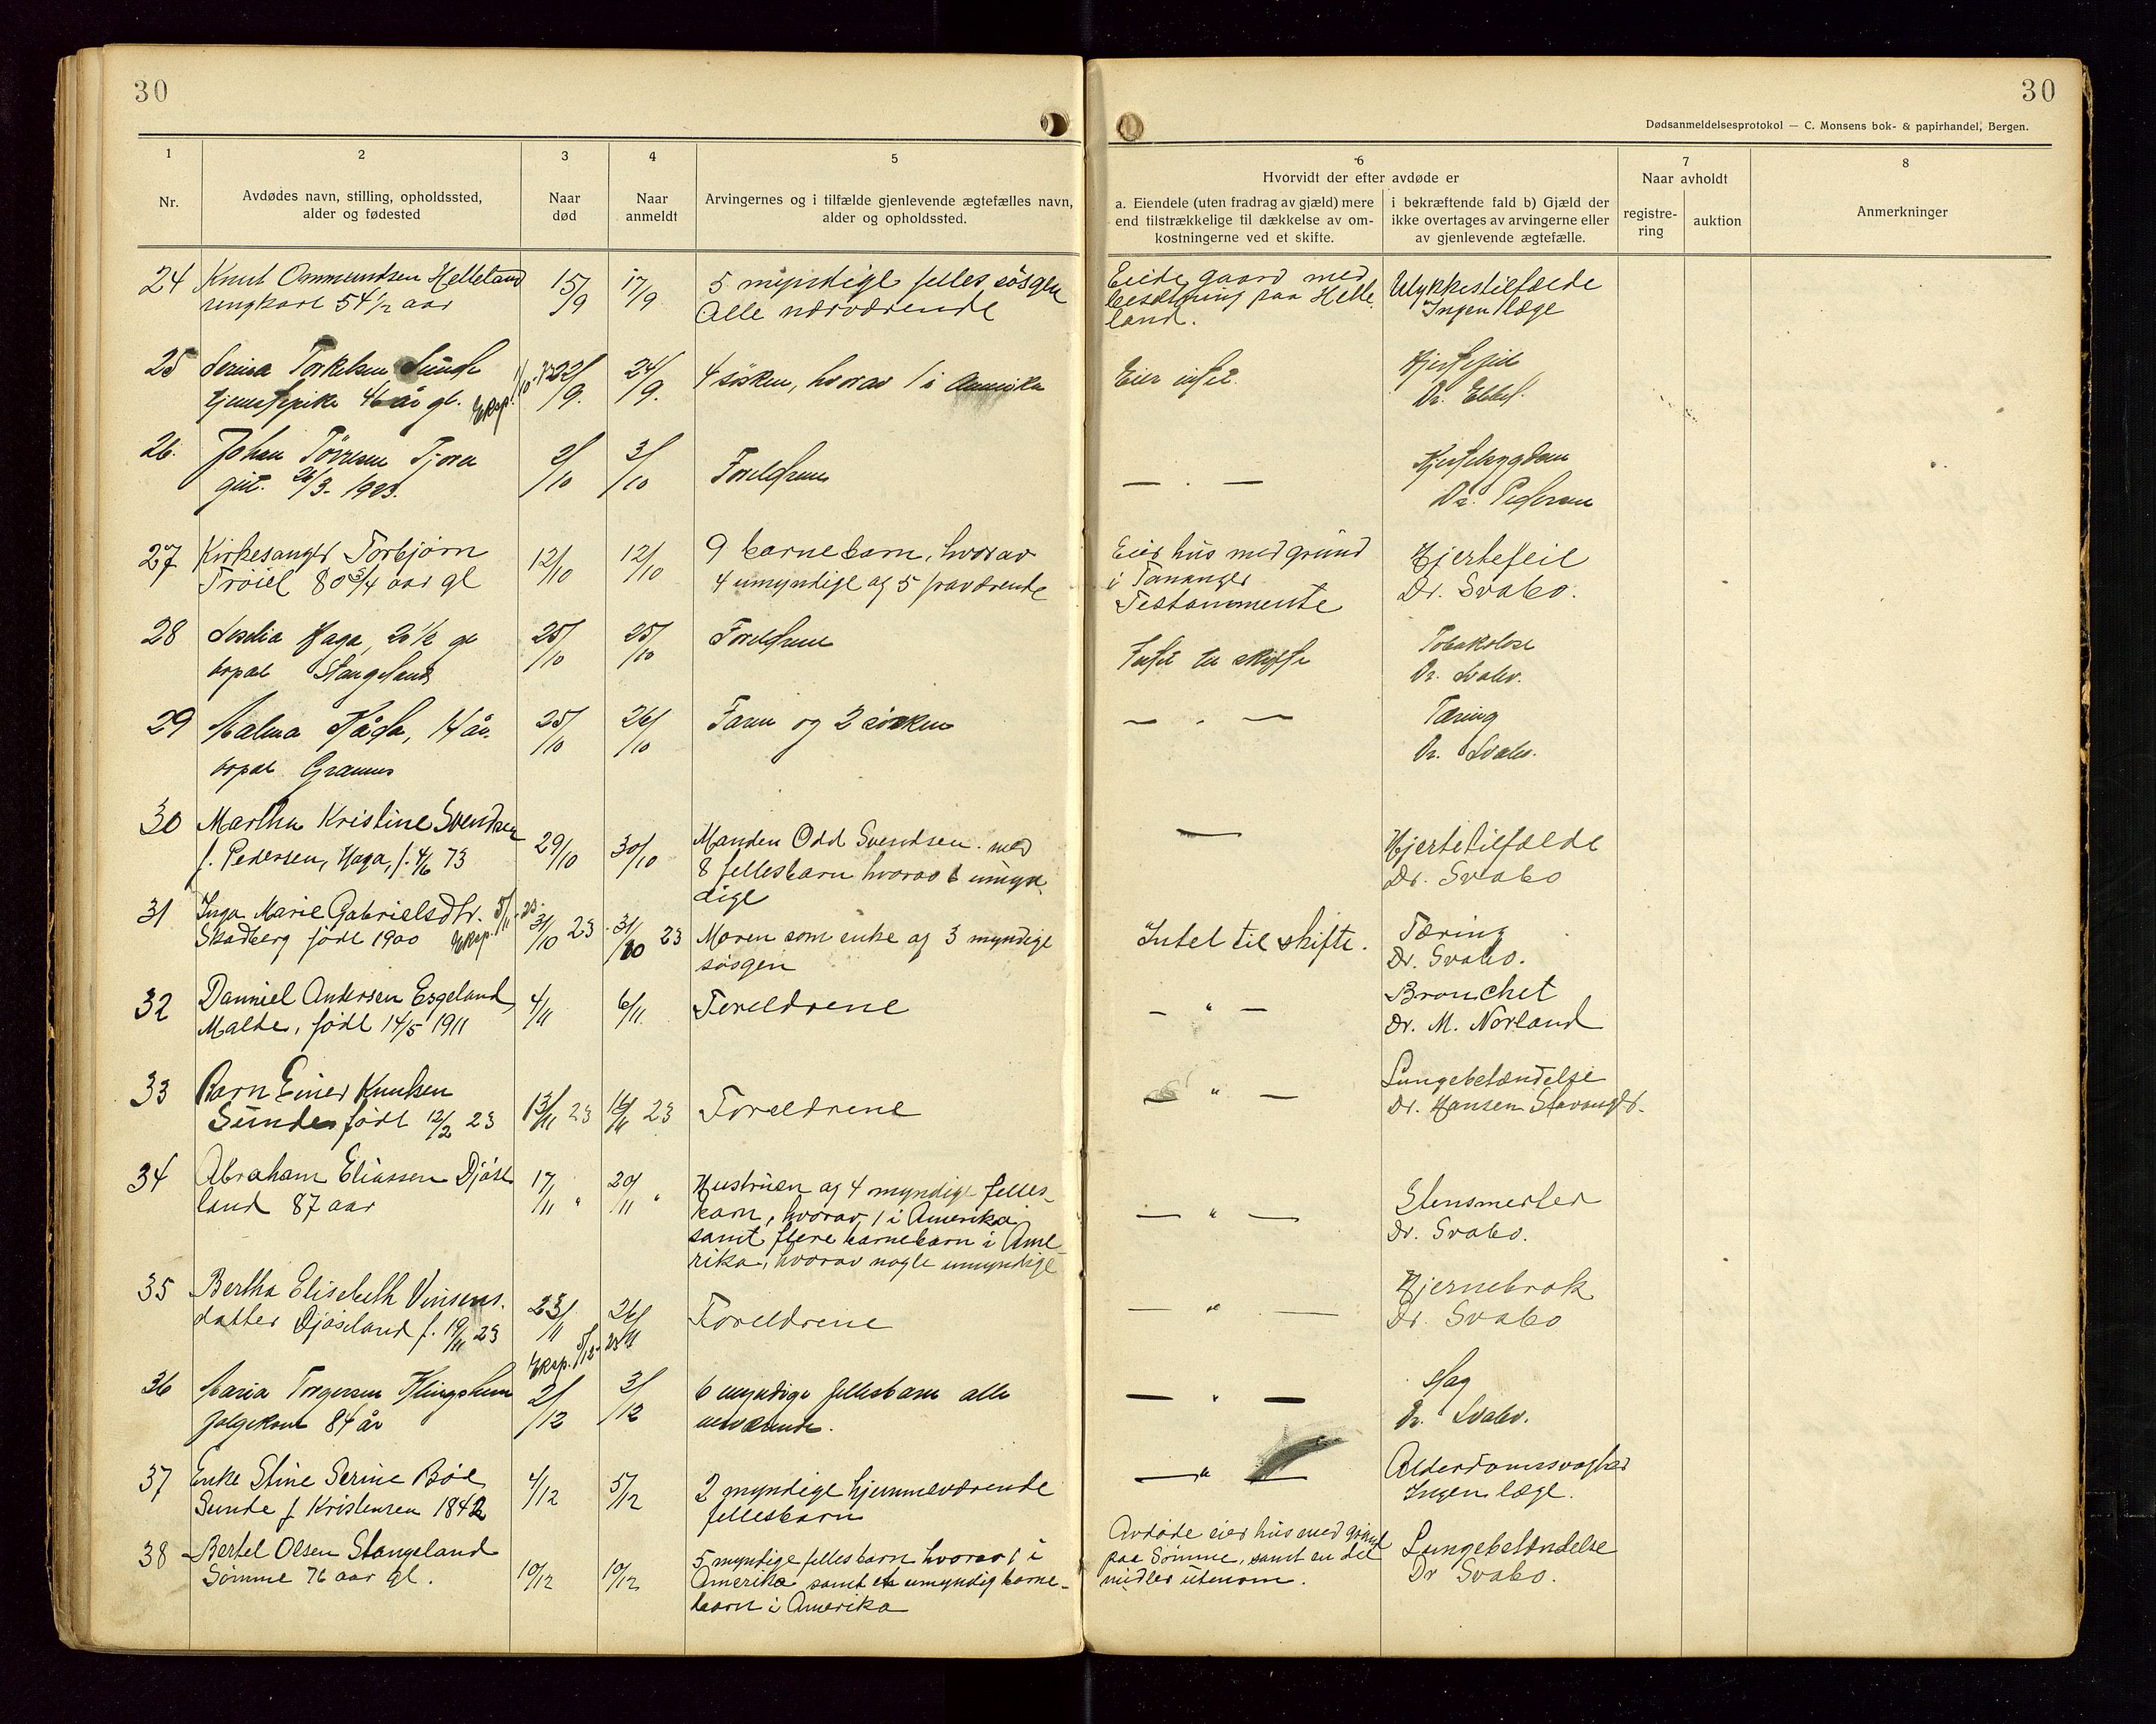 30
30
Dødsanmeldelsesprotokol — C. Monsens bok- & papirhandel, Bergen.
1
Nr.
2
Avdødes navn, stilling, opholdssted,
alder og fødested
3
Naar
død
4
Naar
anmeldt
5
Arvingernes og i tilfælde gjenlevende ægtefælles navn,
alder og opholdssted.
6
Hvorvidt der efter avdøde er
a. Eiendele (uten fradrag av gjæld) mere
end tilstrækkelige til dækkelse av om-
kostningerne ved et skifte.
i bekræftende fald b) Gjæld der
ikke overtages av arvingerne eller
av gjenlevende ægtefælle.
7
Naar avholdt
registre-
ring
auktion
8
Anmerkninger
24 Knut Ommundsen Helleland
ungkarl 54½ aar
15/9
17/9
5 myndige felles søsgen
Alle nærværende
Eiede gaard med
besætning paa Helle
land.
Ulykkestilfælde
Ingen læge
25 Serina Torkelsen Sunde
tjenestepike 46 år gl. Eksp.
22/9.
24/9.
4 søsken, hvorav 1 i Amerika
Eier intet.
Hjertefeil
Dr.
26. Johan Tørresen Tjora
gut. 26/3- 1923.
2/10
3/10
Foreldrene
— . —
Dr. Pedersen
27 Kirkesanger Torbjørn
Trøiel 80 3/4 aar gl
12/10
12/10
9 barnebarn, hvorav
4 umyndige og 5 fraværende
Eier hus med grund
i Tananger
Testammente
Hjertefeil
Dr. Svabo.
28 Haga, 2½ gl
bopæl Stangeland
25/10
25/10
Foreldrene
Intet til skifte
Dr. Svabo.
29 Malena 14 år.
bopæl Grannes
25/10
26/10
Faren og 2 søsken
— . —
Tæring
Dr. Svabo.
30 Martha Kristine Svendsen
f. Pedersen, Haga, f. 4/6 73
29/10
30/10
Manden Odd Svendsen med
8 fellesbarn hvorav 6 umyn-
dige
—
Hjertetilfælde
Dr. Svabo
31 Inga Marie Gabrielsdtr.
Skadberg født 1900 Eksp. 5/11-23.
31/10 23
31/10 23
Moren som enke og 3 myndige
søsgen
Intet til skifte.
Tæring
Dr. Svabo.
32 Danniel Andersen Espeland
Malde, født 14/5 1911
4/11
6/11.
Foreldrene
— " —
Bronchet
Dr. M. Norland
33 Barn Einer Knutsen
Sunde født 12/2 23
13/11 23
16/11 23
Foreldrene
— " —
Lungebetændelse
Dr. Hansen Stavanger.
34 Abraham Eliassen Djøse
land 87 aar
17/11 "
20/11 "
Hustruen og 4 myndige felles-
barn, hvorav 1 i Amerika
samt flere barnebarn i Ame-
rika, hvorav nogle umyndige
— " —
Stensmerter
Dr. Svabo.
35 Bertha Elisebeth Vinsens.
datter Djøseland f. 19/11 23
23/11
26/11
Foreldrene
— " —
Hjernebrok
Dr. Svabo
Eksp. 5/12-23
36 Maria Torgersen
folgekone 84 år
2/12
3/12
6 myndige fellesbarn alle
nærværende.
— " —
Slag
Dr. Svabo.
37 Enke Stine Serine Bøe
Sunde f. Kristensen 1842
4/12
5/12
2 myndige hjemmeværende
fellesbarn
— " —
Alderdomssvaghed
Ingen læge.
38 Bertel Olsen Stangeland
Sømme 76 aar gl.
10/12
10/12
5 myndige fellesbarn hvorav 1 i
Amerika samt et umyndig barne-
barn i Amerika
Avdøde eier hus med grund
paa Sømme, samt en del
midler utenom.
Lungebetændelse
Dr Svabo.